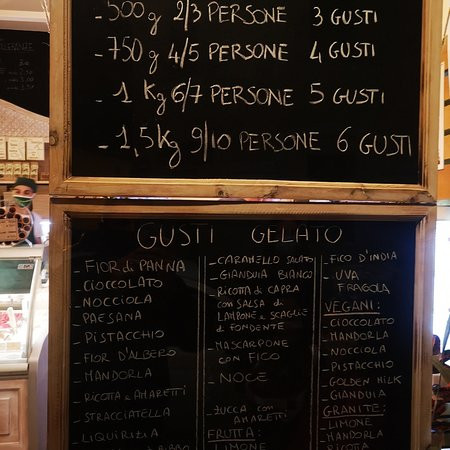 - 500g 2/3 PERSONE 3 GUSTI
- 750g 4/5 PERSONE 4 GUSTI
- 1 Kg 6/7 PERSONE 5 GUSTI
- 1,5Kg 9/10 PERSONE 6 GUSTI
GUSTI GELATO
- FIOR di PANNA
- CIOCCOLATO
- NOCCIOLA
- PAESANA
- PISTACCHIO
- FIOR D'ALBERO
- MANDORLA
- RICOTTA e AMARETTI
- STRACCIATELLA
- LIQUIRIZIA
- CARAMELLO SALATO
- GIANDUIA BIANCO
- RICOTTA di CAPRA
con SALSA di
LAMPONE e SCAGLIE
di FONDENTE
- MASCARPONE
con FICO
- NOCE
- ZUCCA con
AMARETTI
FRUTTA:
- LIMONE
- FICO D'INDIA
- UVA
FRAGOLA
VEGANI:
- CIOCCOLATO
- MANDORLA
- NOCCIOLA
- PISTACCHIO
- GOLDEN MILK
- GIANDUIA
GRANITE:
- LIMONE
- MANDORLA
RICOTTA